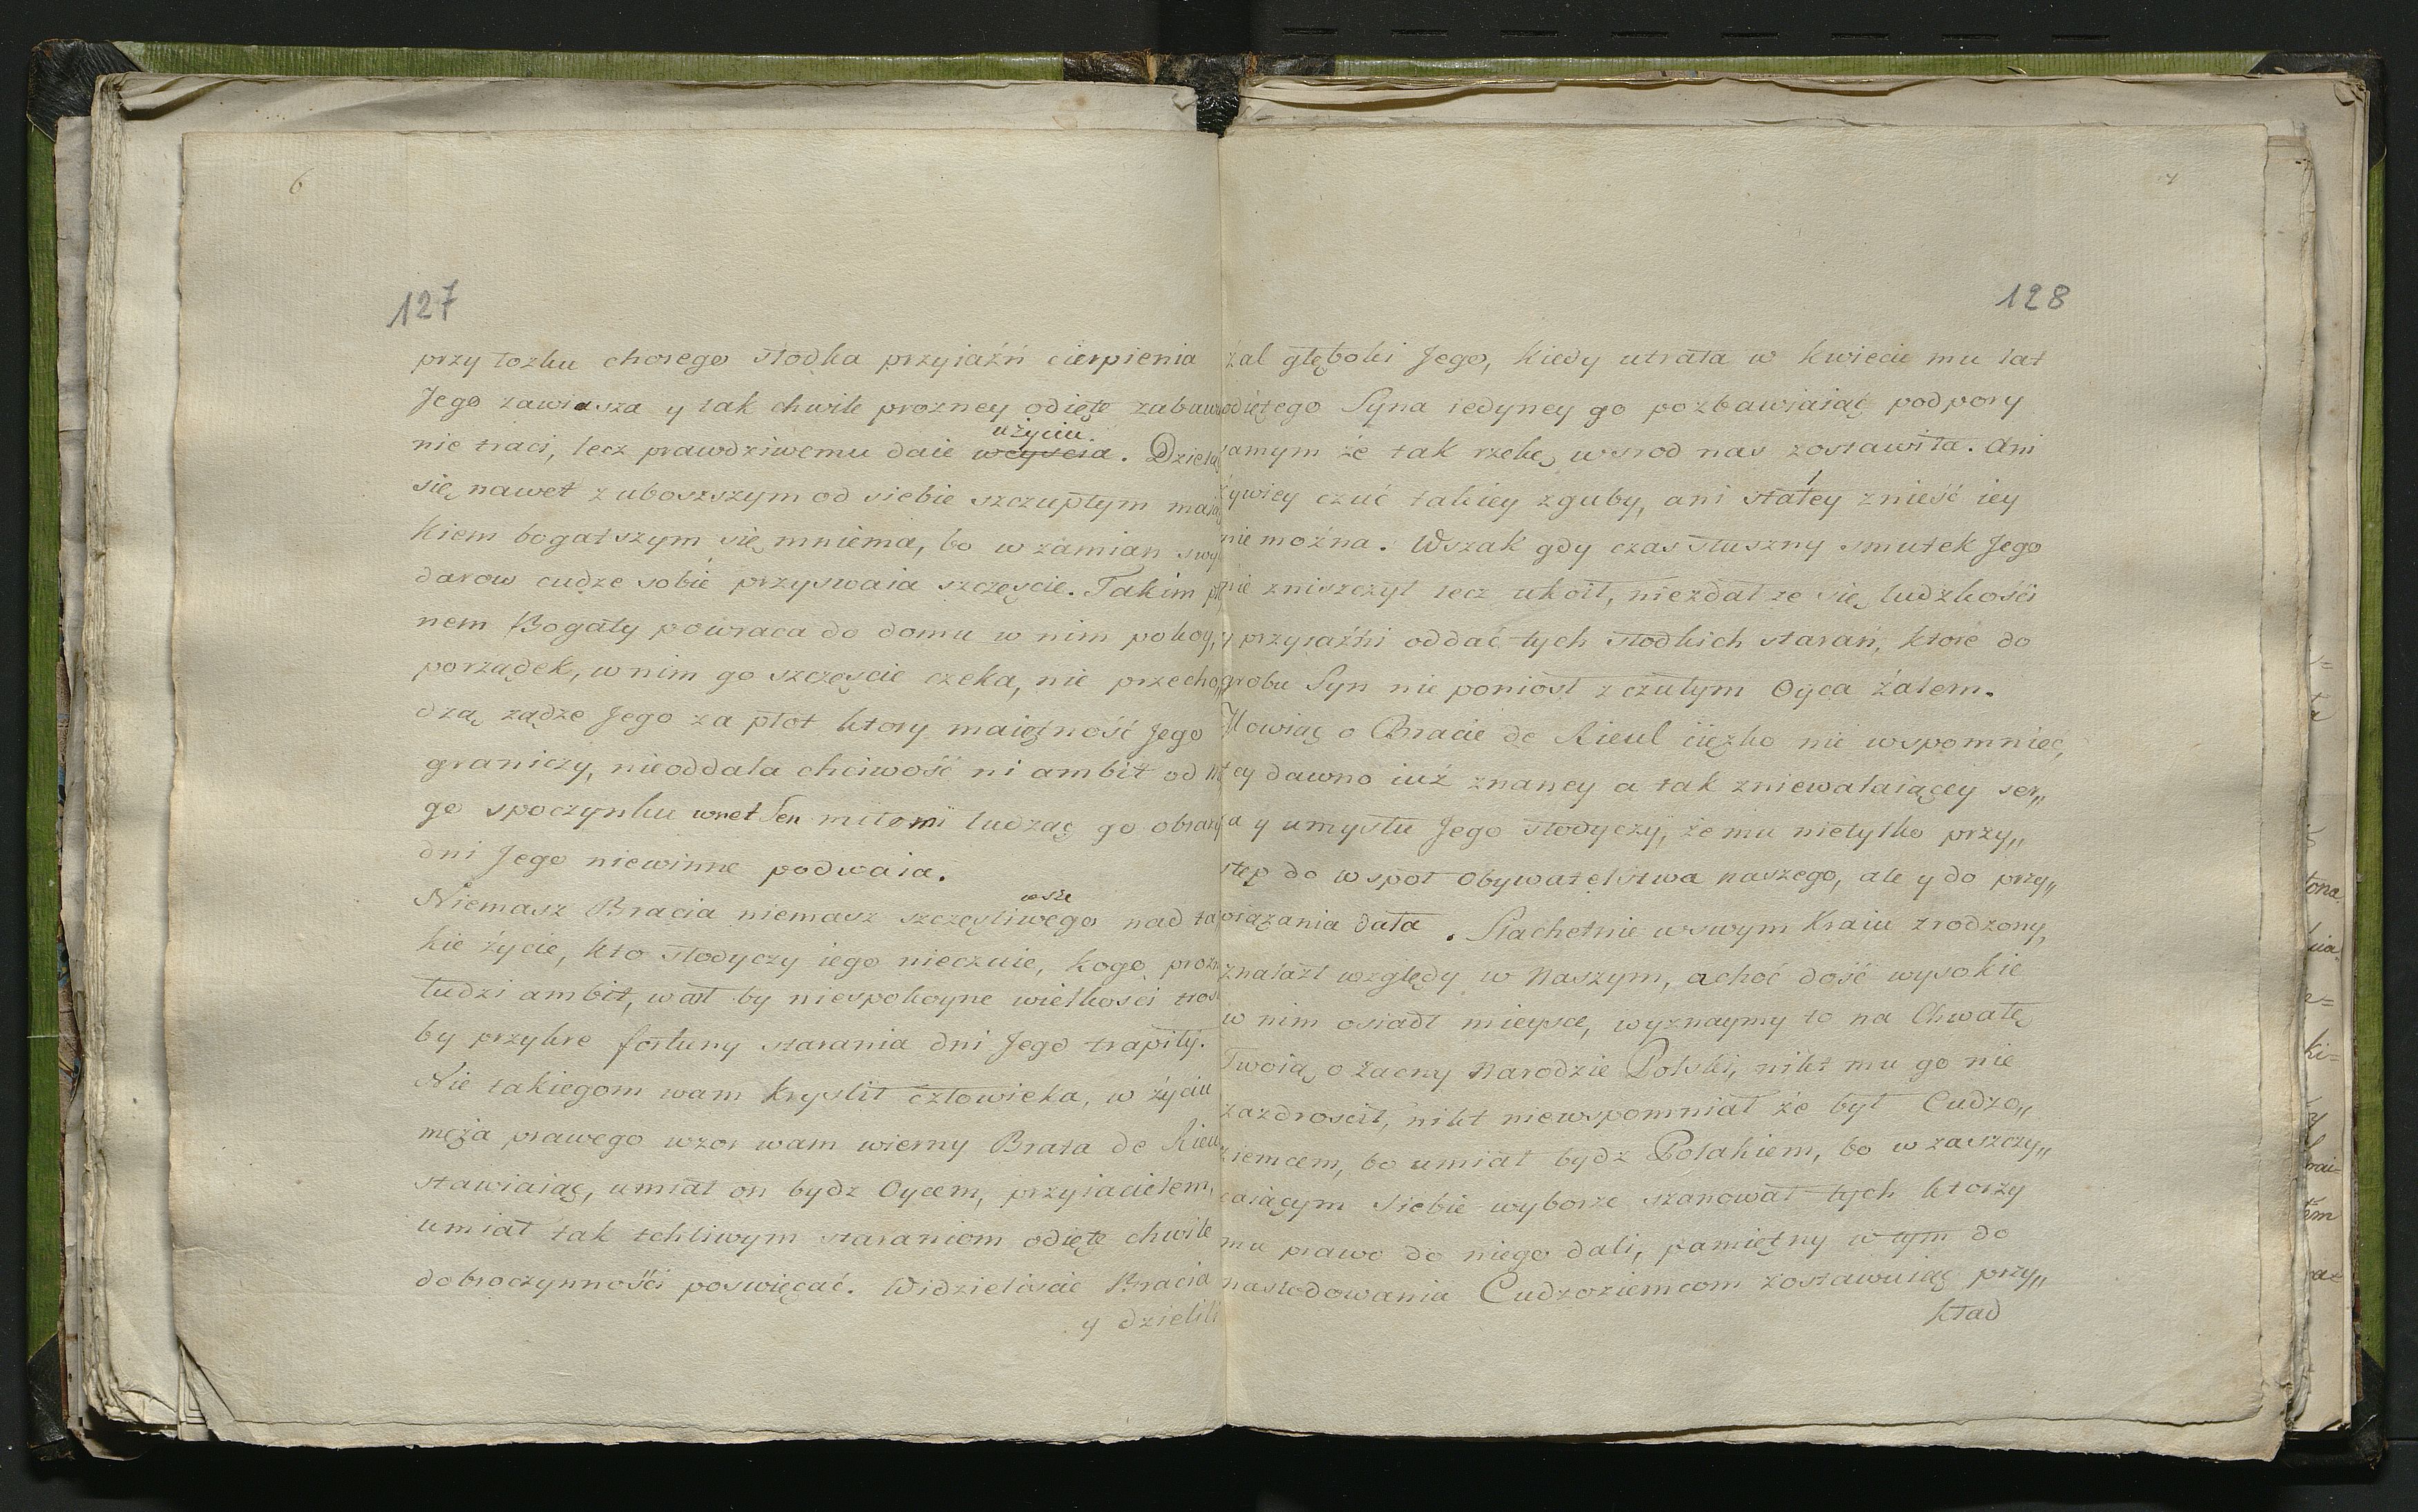 6
127
przy łozku chorego słodka przyiaźń cierpienia
Jego zawiesza y tak chwile prozney odięte zabaw
nie traci, lecz prawdziwemu daie użyciu. Dziel
się nawet z uboszszym od siebie szczupłym mai
kiem bogatszym się mniema, bo w zamian swy
darow cudze sobie przyswaia szczęscie. Takim
nem Bogaty powraca do domu w nim pokoy,
porządek, w nim go szczęscie czeka, nie przecho„
dzą ządze Jego za płot ktory maiętność Jego
graniczy, nieoddala chciwość ni ambit od
go spoczynku wnet Sen miłemi ludząc go obra
dni Jego niewinne podwaia.
Niemasz Bracia niemasz szczęsliwego wsze nad ta
kie życie, kto słodyczy iego nieczuie, kogo prozn
łudzi ambit, wart by niespokoyne wielkosci tros
by przykre fortuny starania dni Jego trapiły.
Nie takiegom wam kryslił człowieka, w życiu
męża prawego wzor wam wierny Brata de Rieu
stawiaiąc, umiał on bydz Oycem, przyiacielem,
umiał tak tchliwym staraniom odięte chwile
dobroczynności poswięcać. Widzieliscie Bracia
y dzielili
7
128
żal głęboki Jego, kiedy utrata w kwiecie mu lat
odiętego Syna iedyney go pozbawiaiąc podpory
samym że tak rzekę wsrod nas zostawiła. Ani
żywiey czuć takiey zguby, ani stałey znieść iey
nie można. Wszak gdy czas słuszny smutek Jego
nie zniszczył lecz ukoił, niezdał ze się ludzkości
y przyiaźni oddać tych słodkich starań, ktore do
grobu Syn nie poniosł z czułym Oyca żalem.
Mowiąc o Bracie de Rieul ciężko nie wspomnieć,
tey dawno iuż znaney a tak zniewalaiącey ser„
ca y umysłu Jego słodyczy, że mu nietylko przy„
stęp do wspoł Obywatelstwa naszego, ale y do przy„
wiązania dała. Slachetnie w swym Kraiu zrodzony,
znalazł względy w Naszym, a choć dość wysokie
w nim osiadł mieysce, wyznaymy to na Chwałę
Twoią o zacny Narodzie Polski, nikt mu go nie
zazdroscił, nikt niewspomniał że był Cudzo„
ziemcem, bo umiał bydz Polakiem, bo w zaszczy„
caiącym Siebie wyborze szanował tych ktorzy
mu prawo do niego dali, pamiętny w tym do
nasłodowania Cudzoziemcom zostawuiąc przy„
kład